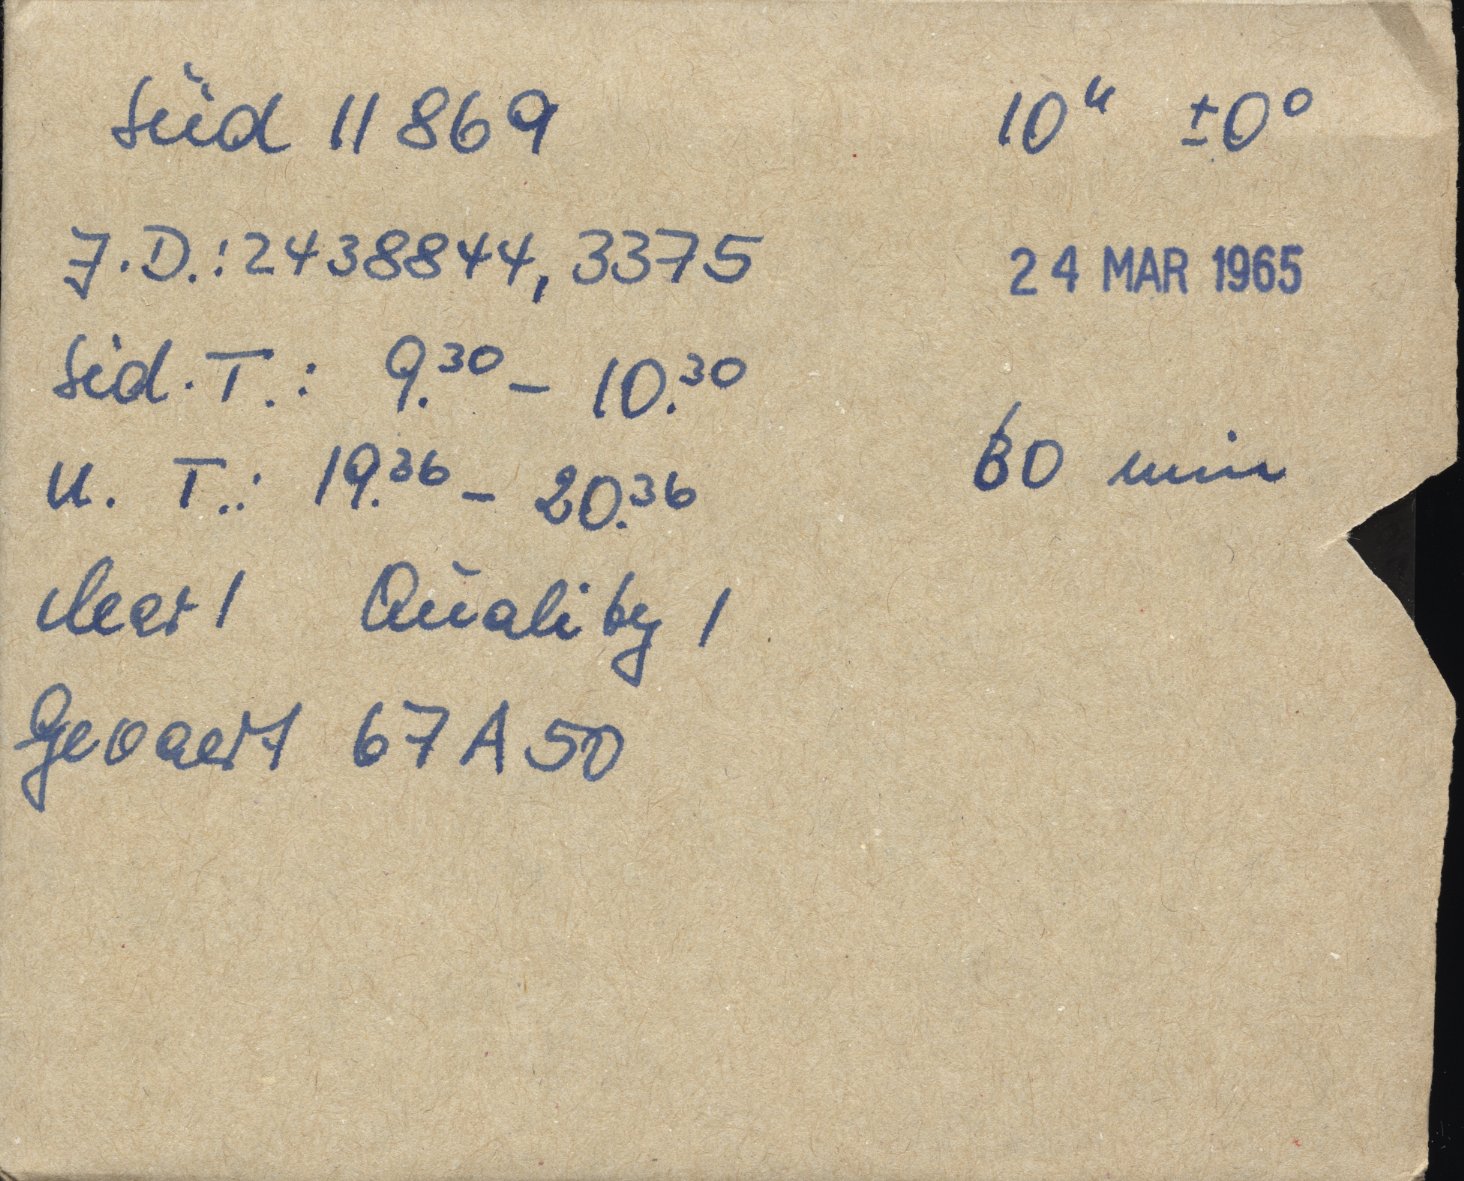 Süd 11869 10ʰ ±0°
J.D.: 2438844,3375 24 MAR 1965
Sid. T.: 9.³⁰ – 10.³⁰
U. T.: 19.³⁶ – 20.³⁶ 60 min
clear 1 Quality 1
Gevaert 67A50